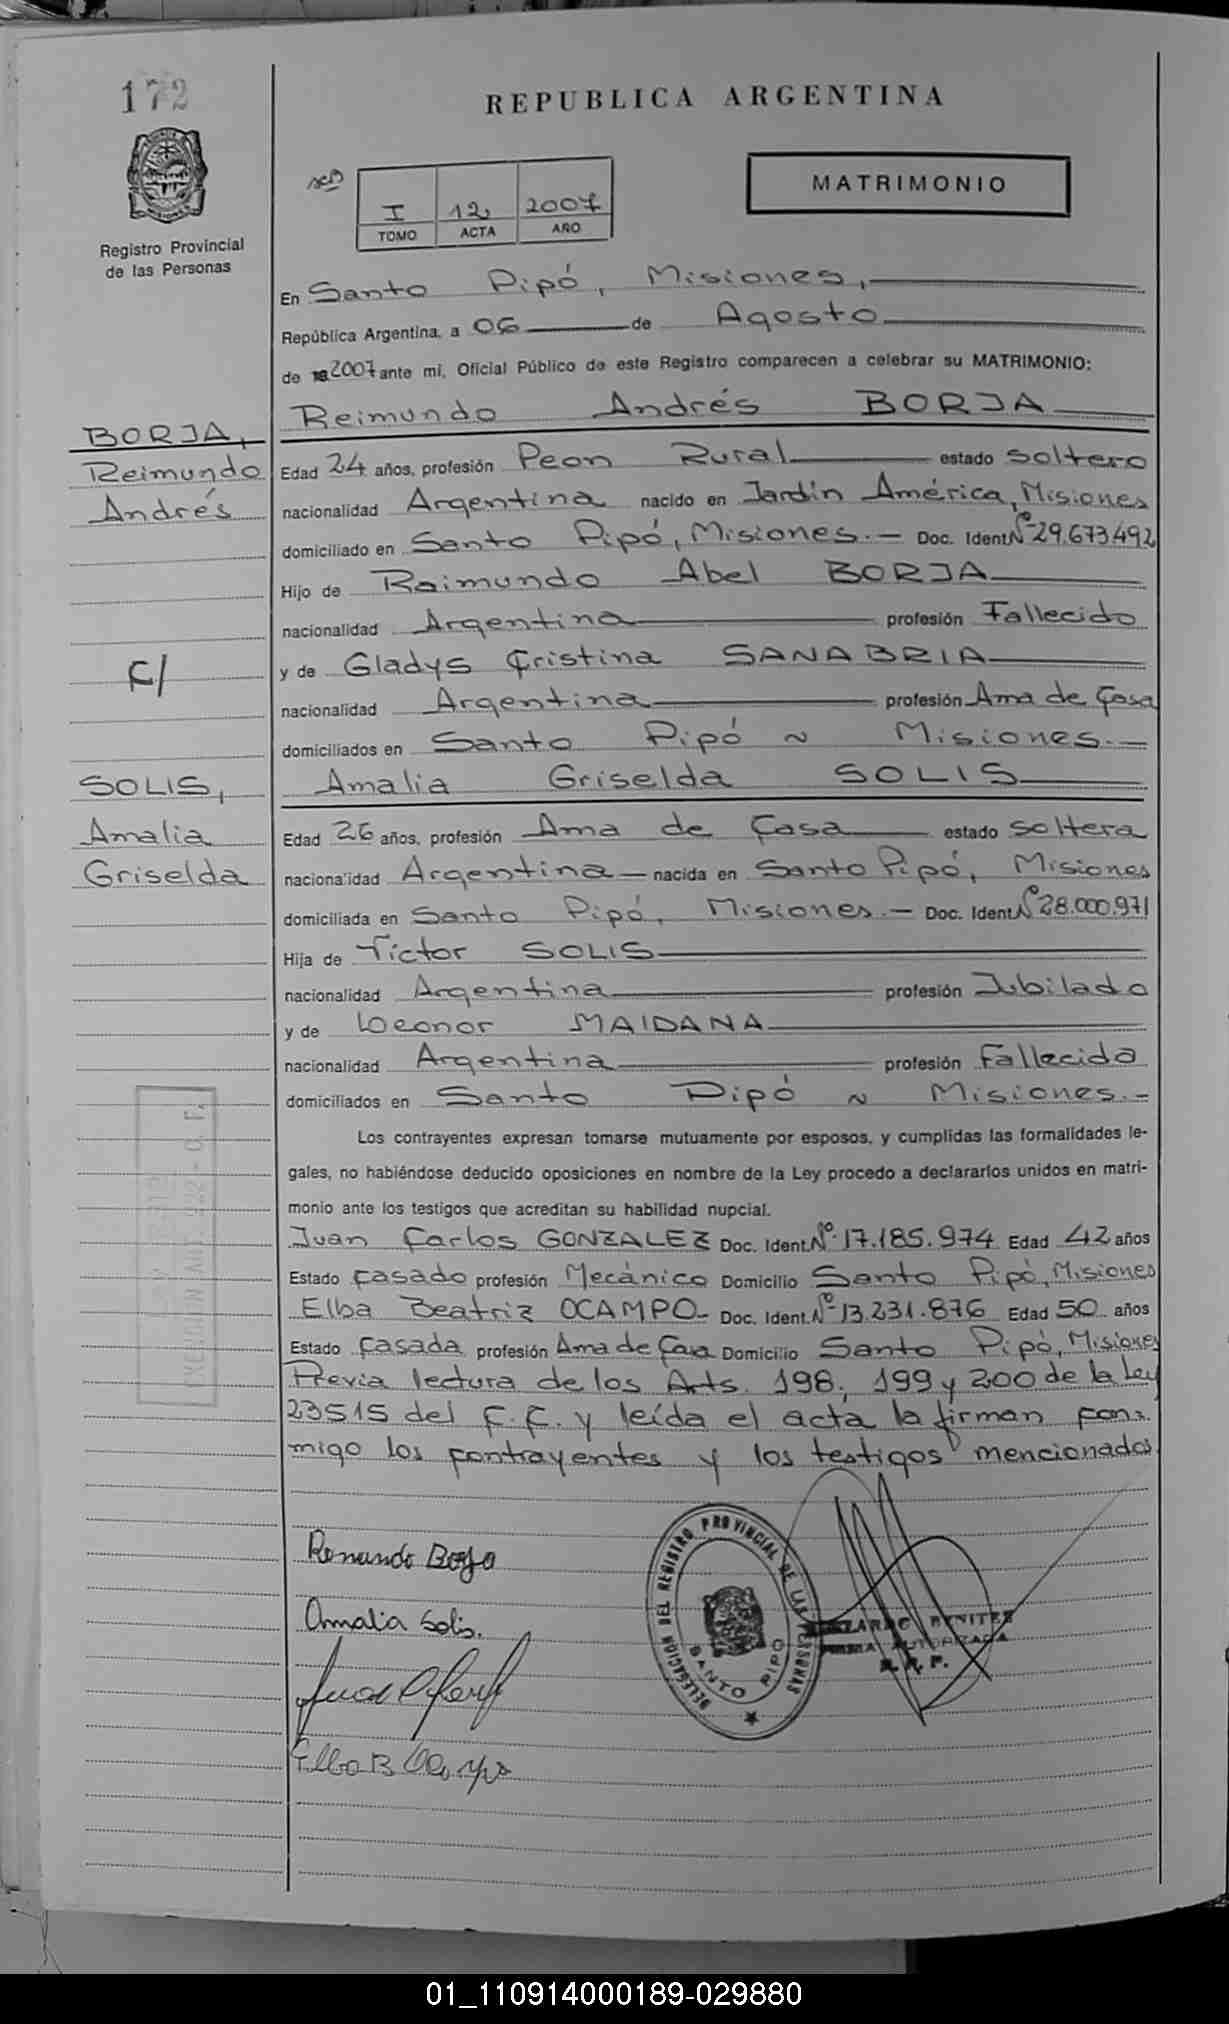 172
REPUBLICA ARGENTINA
Registro Provincial
de las Personas
I 12 2007
TOMO ACTA AÑO
MATRIMONIO
En Santo Pipó, Misiones,
República Argentina, a 06 de Agosto
de 2007 ante mí, Oficial Público de este Registro comparecen a celebrar su MATRIMONIO:
Reimundo Andrés BORJA
BORJA,
Reimundo
Andrés
Edad 24 años, profesión Peon Rural estado soltero
nacionalidad Argentina nacido en Jardín América, Misiones
domiciliado en Santo Pipó, Misiones.- Doc. Ident Nº 29.673.492
Hijo de Raimundo Abel BORJA
nacionalidad Argentina profesión Fallecido
C/
y de Gladys Cristina SANABRIA
nacionalidad Argentina profesión Ama de Casa
domiciliados en Santo Pipó ~ Misiones.-
SOLIS,
Amalia
Griselda
Amalia Griselda SOLIS
Edad 26 años, profesión Ama de Casa estado soltera
nacionalidad Argentina - nacida en Santo Pipó, Misiones
domiciliada en Santo Pipó, Misiones.- Doc. Ident Nº 28.000.971
Hija de Victor SOLIS
nacionalidad Argentina profesión Jubilado
y de Leonor MAIDANA
nacionalidad Argentina profesión Fallecida
domiciliados en Santo Pipó ~ Misiones.-
Los contrayentes expresan tomarse mutuamente por esposos, y cumplidas las formalidades le-
gales, no habiéndose deducido oposiciones en nombre de la Ley procedo a declararlos unidos en matri-
monio ante los testigos que acreditan su habilidad nupcial.
Juan Carlos GONZALEZ Doc. Ident. Nº 17.185.974 Edad 42 años
Estado casado profesión Mecánico Domicilio Santo Pipó, Misiones
Elba Beatriz OCAMPO- Doc. Ident. Nº 13.231.876 Edad 50 años
Estado casada profesión Ama de Casa Domicilio Santo Pipó, Misiones
Previa lectura de los Arts. 198, 199 y 200 de la Ley
23515 del C.C. y leída el acta la firman con-
migo los contrayentes y los testigos mencionados.
Amalia Solis.
DELEGACION DEL REGISTRO PROVINCIAL DE LAS PERSONAS
SANTO PIPO
BENITEZ
FIRMA AUTORIZADA
R. P. P.
01_110914000189-029880